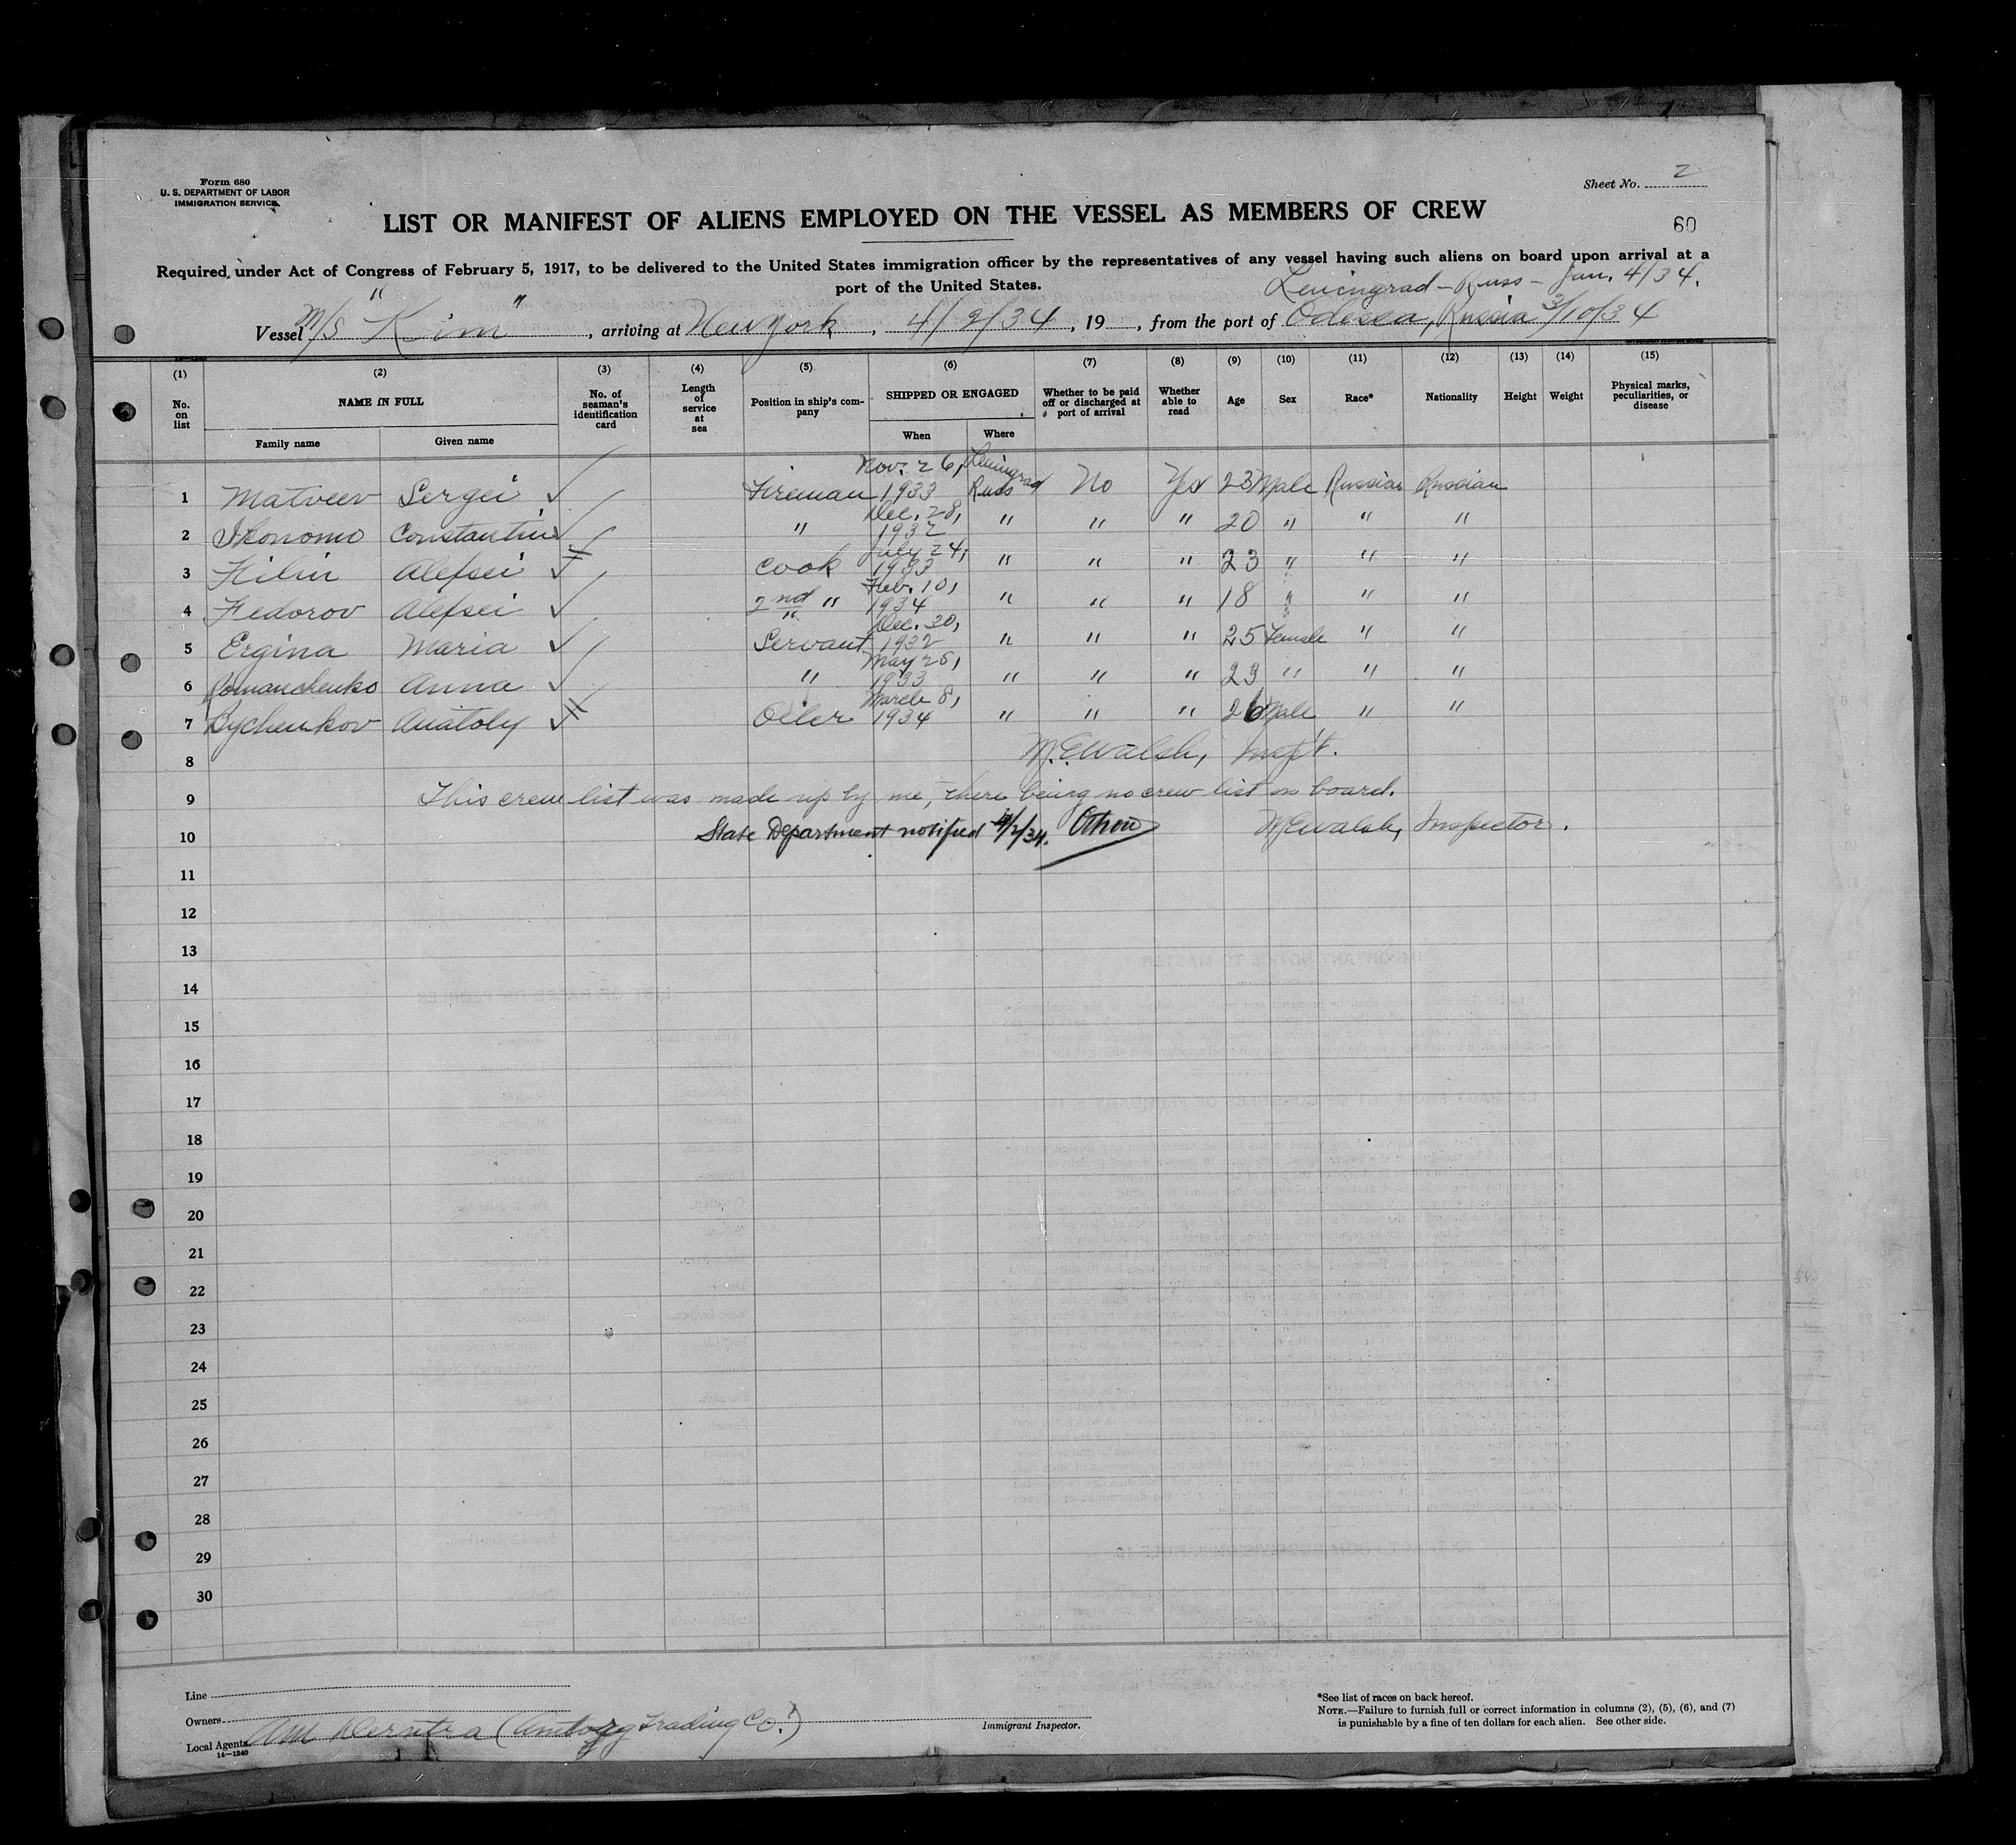 Form 680
U. S. DEPARTMENT OF LABOR
IMMIGRATION SERVICE
Sheet No. 2
LIST OR MANIFEST OF ALIENS EMPLOYED ON THE VESSEL AS MEMBERS OF CREW
60
Required under Act of Congress of February 5, 1917, to be delivered to the United States immigration officer by the representatives of any vessel having such aliens on board upon arrival at a
port of the United States.
Leningrad - Russ - Jan. 4/34.
Vessel M/S "Kim", arriving at New York, 4/2/34, 19__, from the port of Odessa, Russia 3/10/34
(1) (2) (3) (4) (5) (6) (7) (8) (9) (10) (11) (12) (13) (14) (15)
No. on list NAME IN FULL No. of seaman's identification card Length of service at sea Position in ship's company SHIPPED OR ENGAGED Whether to be paid off or discharged at port of arrival Whether able to read Age Sex Race* Nationality Height Weight Physical marks, peculiarities, or disease
Family name Given name When Where
1 Matveev Sergei Fireman Nov. 26, 1933 Leningrad Russ No Yes 23 Male Russian Russian
2 Ikonomo Constantin " Dec. 28, 1932 " " " 20 " " "
3 Filin Aleksei Cook July 24, 1933 " " " 23 " " "
4 Fedorov Aleksei 2nd " Feb. 10, 1934 " " " 18 " " "
5 Ergina Maria Servant Dec. 30, 1932 " " " 25 Female " "
6 Romanchenko Anna " May 25, 1933 " " " 23 " " "
7 Bychenkov Anatoly Oiler March 8, 1934 " " " 26 Male " "
8 M.E. Walsh, Insp't.
9 This crew list was made up by me, there being no crew list on board.
10 State Department notified 4/2/34. M.E. Walsh, Inspector.
11
12
13
14
15
16
17
18
19
20
21
22
23
24
25
26
27
28
29
30
Line
Owners
Local Agents Am Derutra (Amtorg Trading Co.)
14-1240
Immigrant Inspector.
*See list of races on back hereof.
NOTE.—Failure to furnish full or correct information in columns (2), (5), (6), and (7)
is punishable by a fine of ten dollars for each alien. See other side.